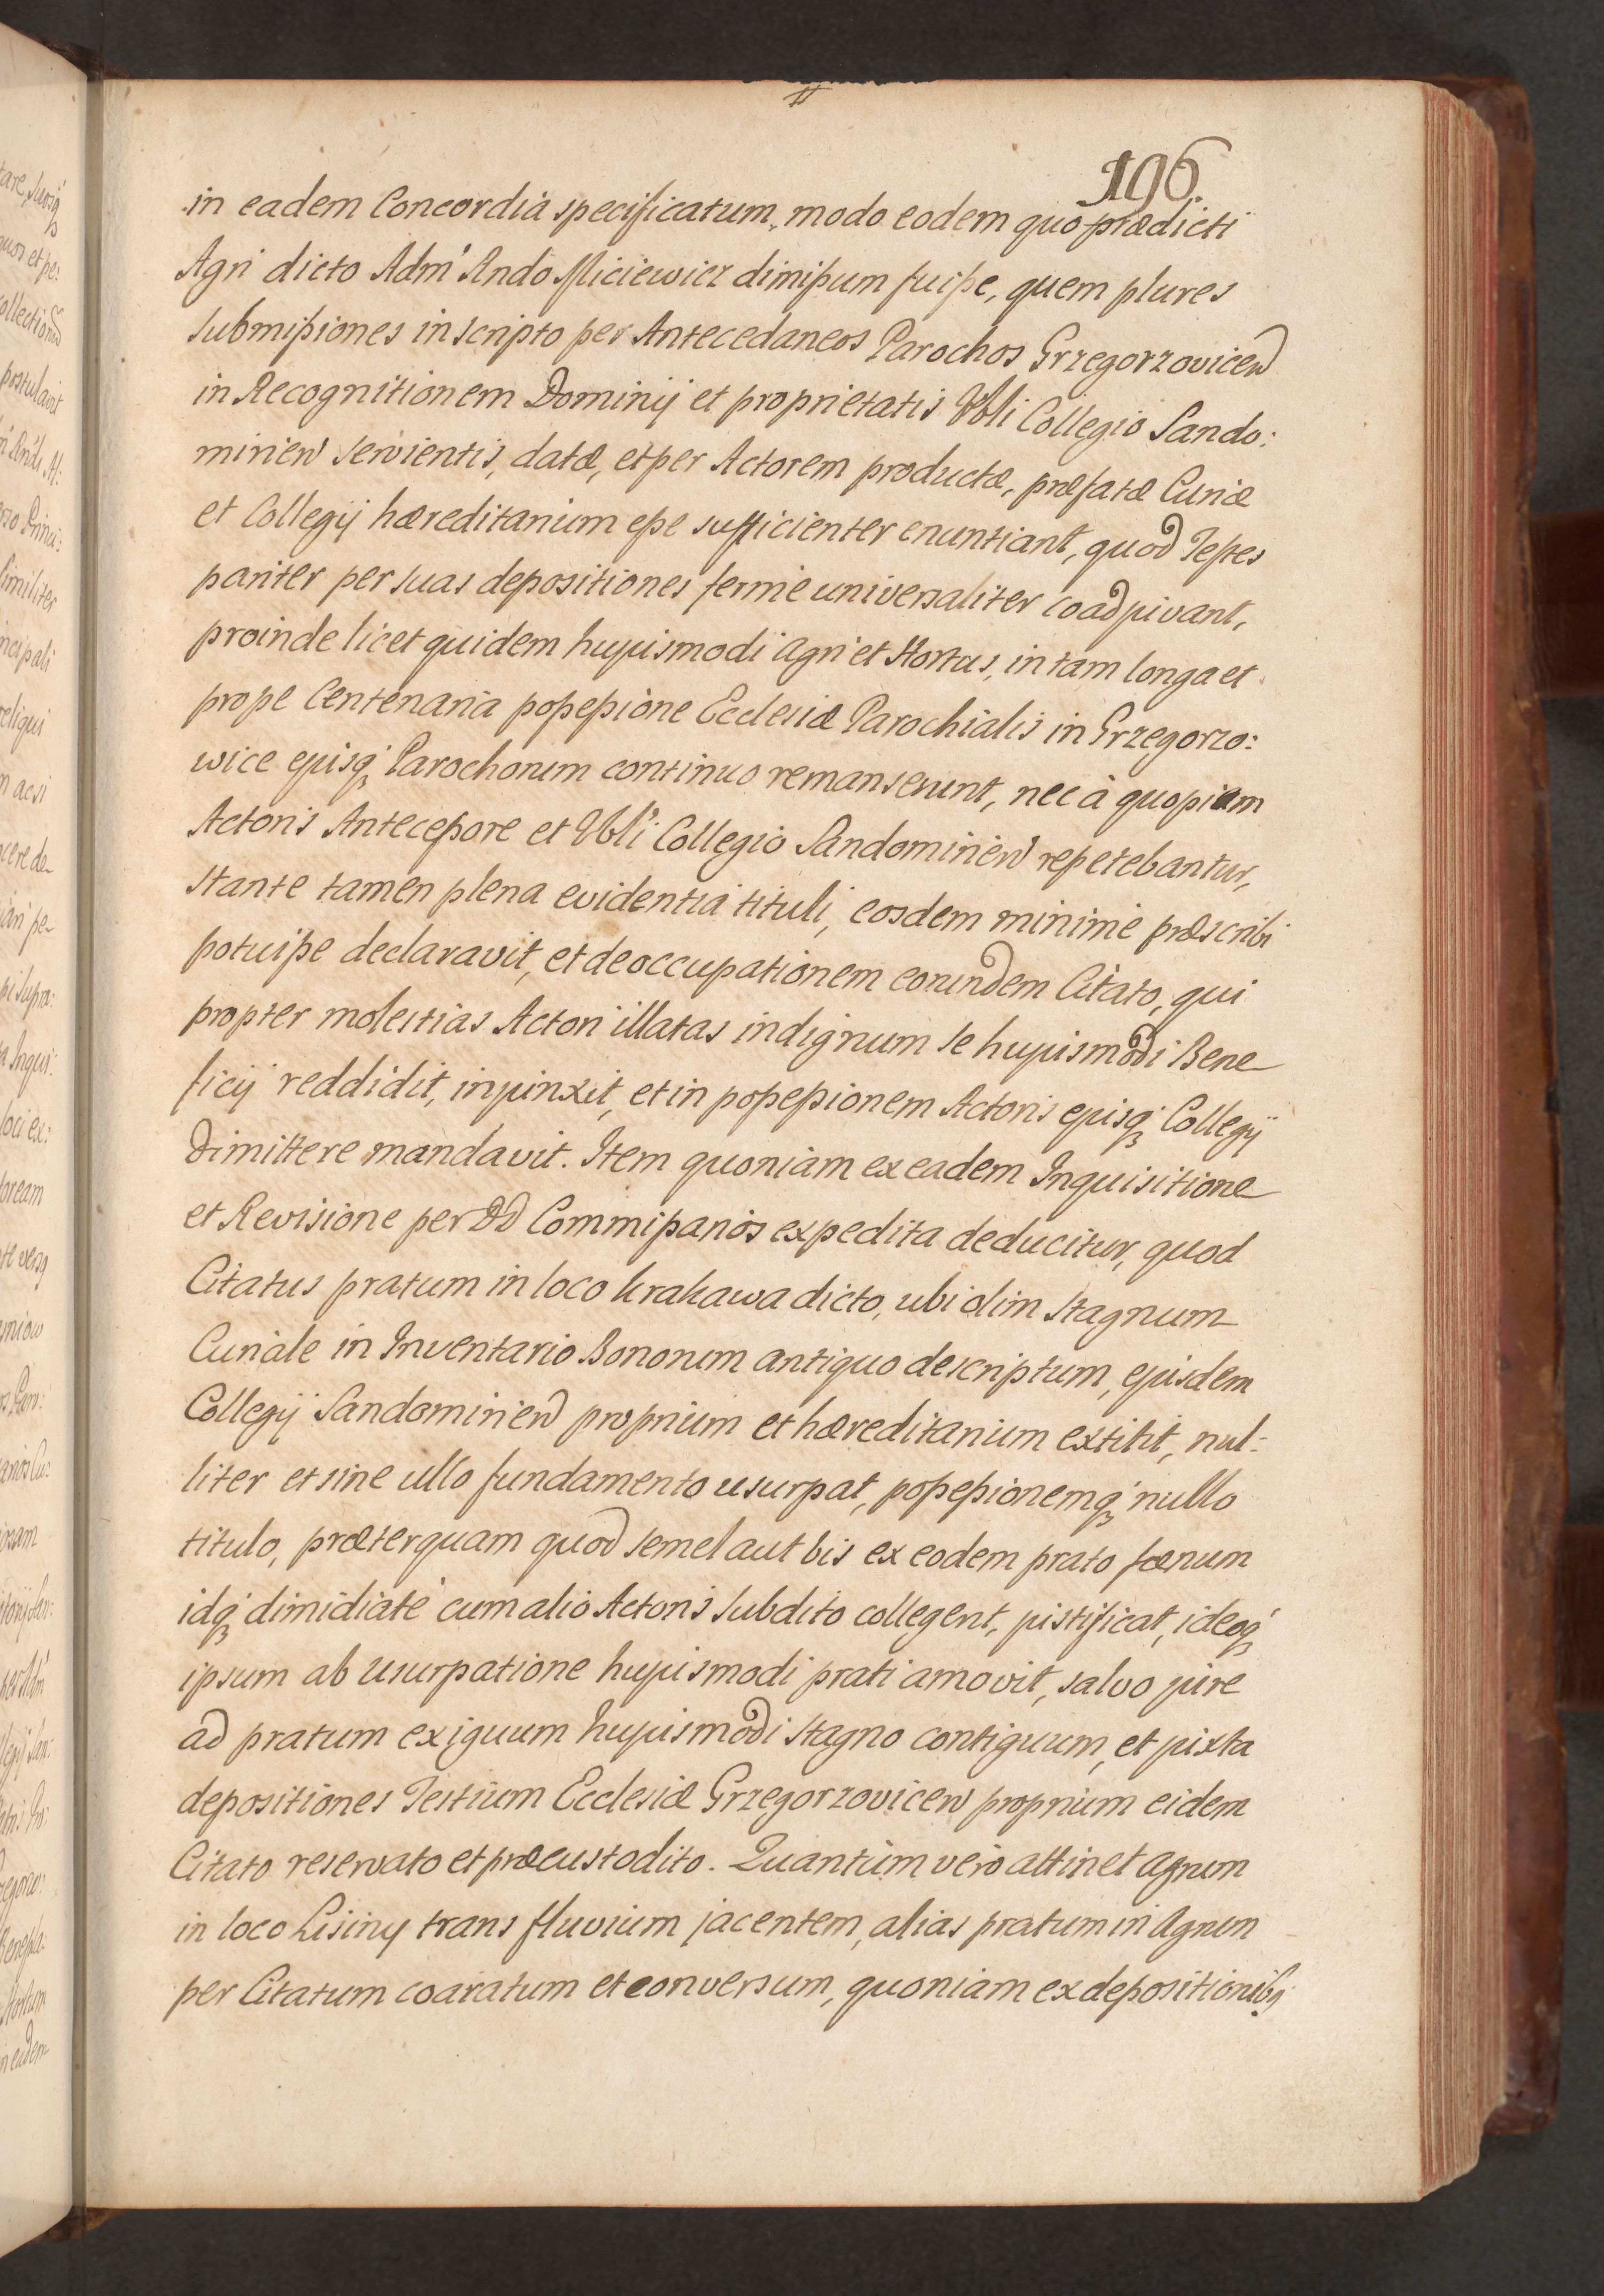 196.
in eadem Concordia specificatum, modo eodem quo prædicti
Agri dicto Adm̃ Rndo Miciewicz dimissum fuisse, quem plures
submissiones in scripto per Antecedaneos Parochos Grzegorzovicen
in Recognitionem Dominij et proprietatis Vbli Collegio Sando:
mirien servientis, datæ, et per Actorem productæ, præfatæ Curiæ
et Collegij hæreditarium esse sufficienter enuntiant, quod Testes
pariter per suas depositiones ferme universaliter coadjuvant,
proinde licet quidem hujusmodi agri et Hortus, in tam longa et
prope Centenaria possessione Ecclesiæ Parochialis in Grzegorzo:
wice ejusq; Parochorum continuo remanserunt, nec à quopiam
Actoris Antecessore et Vbli Collegio Sandomirien repetebantur,
stante tamen plena evidentia tituli, eosdem minime præscribi
potuisse declaravit, et deoccupationem eorundem Citato, qui
propter molestias Actori illatas indignum se hujusmodi Bene-
ficij reddidit, injunxit, et in possessionem Actoris ejusq; Collegij
dimittere mandavit. Item quoniam ex eadem Inquisitione
et Revisione per DD Commissarios expedita deducitur, quod
Citatus pratum in loco Krakawa dicto, ubi olim stagnum
Curiale in Inventario Bonorum antiquo descriptum, ejusdem
Collegij Sandomirien proprium et hæreditarium extitit, nul:
liter et sine ullo fundamento usurpat, possessionemq; nullo
titulo, præterquam quod semel aut bis ex eodem prato fœnum
idq; dimidiate cum alio Actoris subdito collegerit, justificat, ideoq;
ipsum ab usurpatione hujusmodi prati amovit, salvo jure
ad pratum exiguum hujusmodi stagno contiguum, et juxta
depositiones Testium Ecclesiæ Grzegorzovicen proprium eidem
Citato reservato et præcustodito. Quantum vero attinet agrum
in loco Lisiny trans fluvium jacentem, alias pratum in Agrum
per Citatum coaratum et conversum, quoniam ex depositionibq